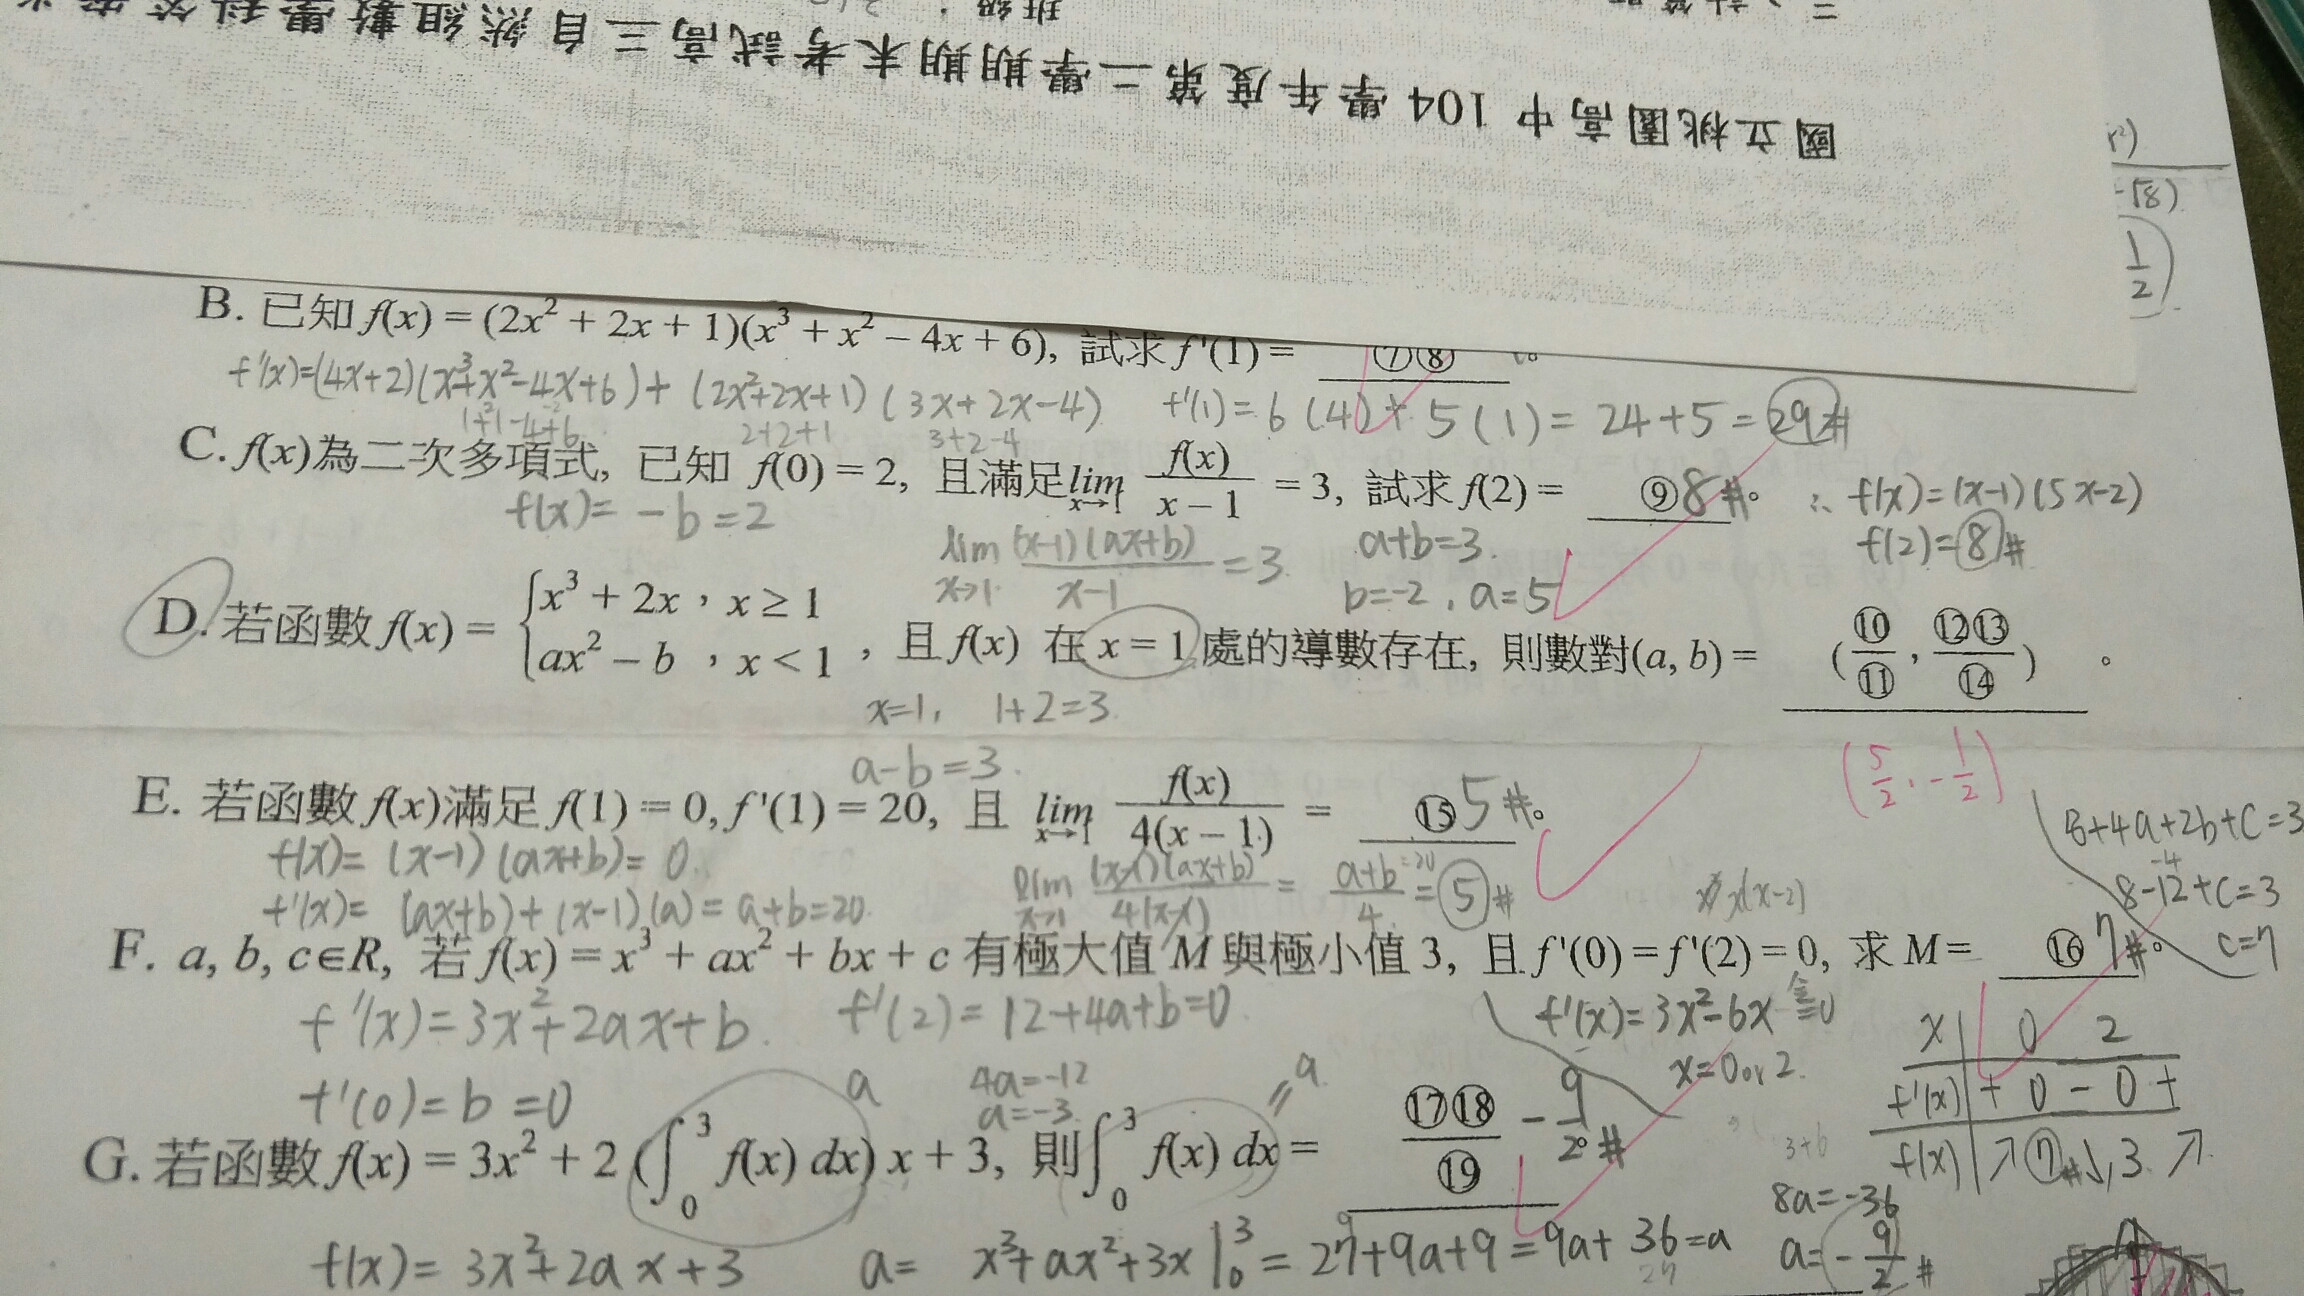 國立桃園高中 104 學年度第二學期期末考試高三自然組數學科答案
班級：
B. 已知 f(x) = (2x² + 2x + 1)(x³ + x² − 4x + 6), 試求 f'(1) = ⑦⑧
f'(x)=(4x+2)(x³+x²-4x+6)+(2x²+2x+1)(3x+2x-4) f'(1)=6(4)+5(1)=24+5=29#
1+1-4+6 2+2+1 3+2-4
C. f(x)為二次多項式, 已知 f(0) = 2, 且滿足 lim x→1 f(x)/(x − 1) = 3, 試求 f(2) = ⑨ 8#。 ∴ f(x)=(x-1)(5x-2)
f(x)= -b=2 lim x→1 (x-1)(ax+b)/(x-1) =3 a+b=3 f(2)=8#
b=-2, a=5
D. 若函數 f(x) = { x³ + 2x，x ≥ 1
ax² − b ，x < 1 ，且 f(x) 在 x = 1 處的導數存在, 則數對(a, b) = (⑩/⑪, ⑫⑬/⑭) 。
x=1, 1+2=3
a-b=3 (5/2, -1/2)
E. 若函數 f(x)滿足 f(1) = 0, f '(1) = 20, 且 lim x→1 f(x)/4(x − 1) = ⑮ 5#。
f(x)=(x-1)(ax+b)=0
f'(x)=(ax+b)+(x-1)(a)=a+b=20 lim x→1 (x-1)(ax+b)/4(x-1) = a+b=20/4 = 5#
8+4a+2b+c=3
8-12+c=3
c=7
x(x-2)
F. a, b, c∈R, 若 f(x) = x³ + ax² + bx + c 有極大值 M 與極小值 3, 且 f '(0) = f '(2) = 0, 求 M = ⑯ 7#。
f'(x)=3x²+2ax+b f'(2)=12+4a+b=0 f'(x)=3x²-6x 令=0
f'(0)=b=0 4a=-12 x=0 or 2
a=-3
x 0 2
f'(x) + 0 - 0 +
f(x) ↗ 7# ↘ 3 ↗
G. 若函數 f(x) = 3x² + 2 (∫₀³ f(x) dx) x + 3, 則∫₀³ f(x) dx = ⑰⑱/⑲ -9/2#。
a =a
f(x)=3x²+2ax+3 a= x³+ax²+3x|₀³ = 27+9a+9=9a+36=a
8a=-36
a=-9/2#